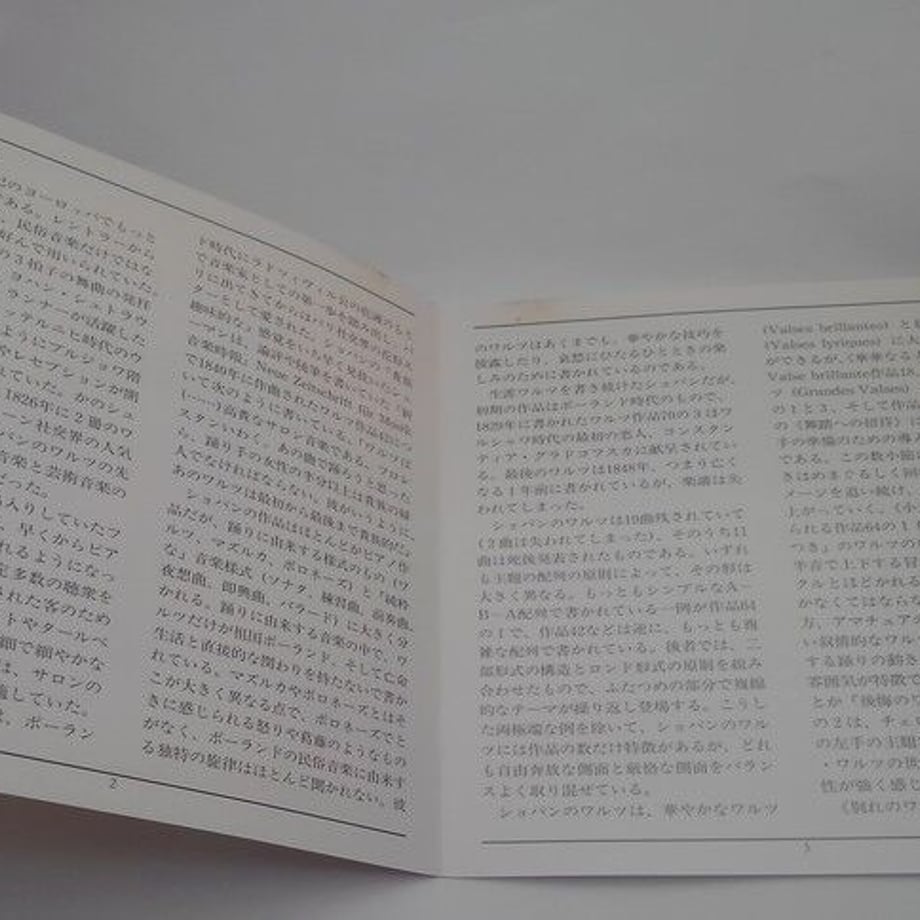 紀のヨーロッパでもっと
である。レントラーから
、民俗音楽だけではな
好んで用いられていた。
の3拍子の舞曲の発社
ヨハン・シュトラウ
ランナーが活躍した
ッテルニヒ時代のウ
ようにブルジョワ階
やレセプションが開
れていた。かのシュ
1826年に2冊のワ
ーン社交界の人気
パンのワルツの先
音楽と芸術音楽の
だった。
出入りしていたフ
、早くからピア
れるようになっ
定多数の聴衆を
された客のため
ストやタールベ
細で細やかな
は、サロンの
施していた。
は、ポーラン
ド時代にラドツィヴィル公の庇護のもと
で音楽家としての第一歩を踏み出し、パ
リに出てきてからはパリ社交界の花形ス
ターとして愛された。ショパンの〈貴族
趣味的な〉感覚をいち早く見抜いたシュ
ーマンは、論評や随筆を書いていた『新
音楽時報、Neue Zeitschrift für Musik』
で1840年に作曲されたワルツ作品42につ
いて次のように書いている。「ワルツは
(……)高貴なサロン音楽である。フロレ
スタンいわく、あの曲で踊ろうと思った
ら、踊り手の女性の半分以上は貴族の婦
人でなければならない。彼がいうように、
あのワルツは最初から最後まで貴族的だ。」
ショパンの作品はほとんどがピアノ作
品だが、踊りに由来する様式のもの（ワ
ルツ、マズルカ、ポロネーズ）と『純粋
な』音楽様式（ソナタ、練習曲、前奏曲、
夜想曲、即興曲、バラード）に大きく分
かれる。踊りに由来する音楽の中で、ワ
ルツだけが祖国ポーランド、そして亡命
生活と直接的な関わりを持たないで書か
れている。マズルカやポロネーズとはそ
こが大きく異なる点で、ポロネーズでと
きに感じられる怒りや葛藤のようなもの
がなく、ポーランドの民俗音楽に由来す
る独特の旋律はほとんど聞かれない。彼
2
のワルツはあくまでも、華やかな技巧を
披露したり、哀愁にひたるひとときの楽
しみのために書かれているのである。
生涯ワルツを書き続けたショパンだが、
初期の作品はポーランド時代のもので、
1829年に書かれたワルツ作品70の3はワ
ルシャワ時代の最初の恋人、コンスタン
ティア・グラドコフスカに献呈されてい
る。最後のワルツは1848年、つまり亡く
なる1年前に書かれているが、楽譜は失
われてしまった。
ショパンのワルツは19曲残されていて
(2曲は失われてしまった)、そのうち11
曲は死後発表されたものである。いずれ
も主題の配列の原則によって、その形は
大きく異なる。もっともシンプルなA－
B－A配列で書かれている一例が作品64
の1で、作品42などは逆に、もっとも複
雑な配列で書かれている。後者では、三
部形式の構造とロンド形式の原則を組み
合わせたもので、ふたつめの部分で複線
的なテーマが繰り返し登場する。こうし
た両極端な例を除いて、ショパンのワル
ツには作品の数だけ特徴があるが、どれ
も自由奔放な側面と厳格な側面をバラン
スよく取り混ぜている。
ショパンのワルツは、華やかなワルツ
(Valses brillantes) と
(Valses lyriques) に大
ができるが、《華麗なる
Valse brillante作品18、
ツ (Grandes Valses)
の1と3、そして作品
の《舞踏への招待》
手の準備のための導
である。この数小節
きはめまぐるしく回
メーンを追い続け、
上がっていく。《小
られる作品64の1
つき』のワルツの
半音で上下する冒
クルとほどかれる
かなくてはならな
方、アマチュア
い叙情的なワル
する踊りの動き
雰囲気が特徴で
とか『後悔の
の2は、チェ
の左手の主題
・ワルツの世
性が強く感じ
《別れのワ
3